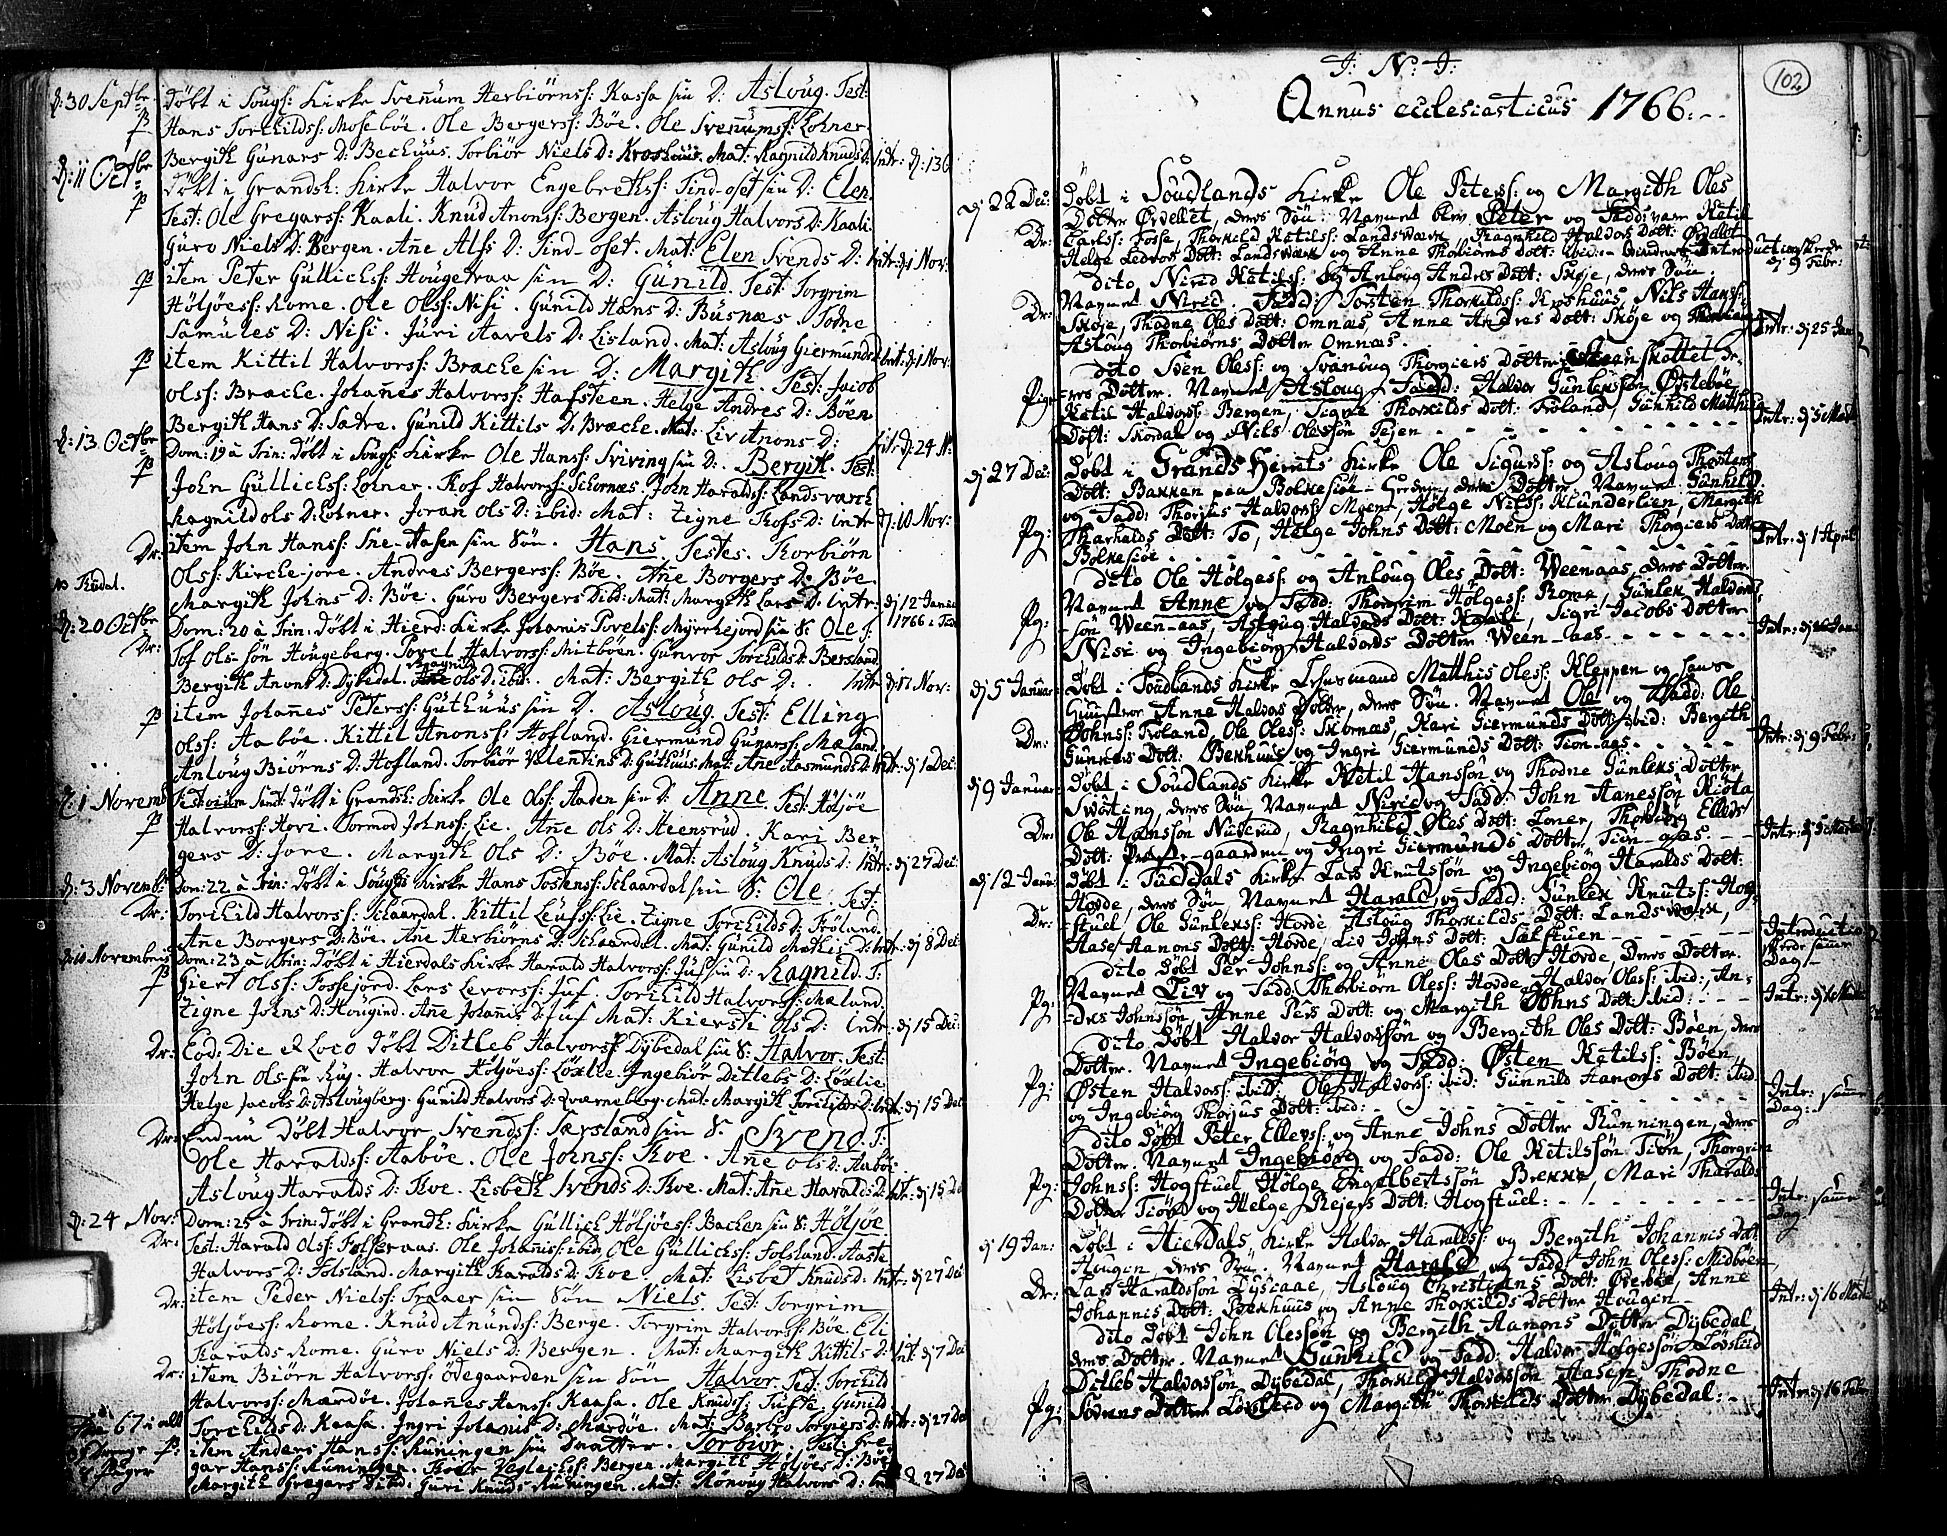 d: 30 Septbr
Døbt i Sougs: Kirke Svenum Herbiörnss: Kassa sin D: Asloug. Test:
P
Hans Torchildss: Mosebøe. Ole Bergerss: Bøe. Ole Svenumss: Lohner.
Bergith Gunars D: Bechuus. Torbiör Niels D: Kroshuus. Mat: Ragnild Knuds D: Intr: d: 13 O
d: 11 Octbr
Døbt i Grandsh: Kirke Halvor Engebrethss: Tind-oset sin D: Elen.
P
Test: Ole Gregarss: Kaali. Knud Anonss: Bergen. Asloug Halvors D: Kaali
Guro Niels D: Bergen. Añe Alfs D: Tind-oset. Mat: Elen Svends D: Intr: d: 1 Nov:
P
item Peter Gullichss: Hougeraa sin D: Gunild. Test: Torgrim
Höljøess: Rome. Ole Olss: Nisi. Gunild Hans D: Busnæs. Todne
Samules D: Nisi. Juri Aarels D: Lisland. Mat: Asloug Giermunds D: Int: d: 1 Nov:
P
item Kittil Halvorss: Brache sin D: Margith. Test: Jacob
Olss: Brache. Johañes Halvorss: Hafsteen. Helge Andres D: Böen
Bergith Hans D: Sætre. Gunild Kittils D: Brache. Mat: Liv Anons D: Intr: d: 24 N:
d: 13 Octbr
Dom: 19 à Trin: Døbt i Sougs: Kirke Ole Hanss: Sviring sin D: Bergit. Test:
P
John Gullichss: Lohner. Rof Halvorss: Schornæs. John Haraldss: Landsvarch
Ragnild Ols D: Lohner. Joran Ols D: ibid: Mat: Zigne Rofs D: intr d: 10 Nov:
Dr:
item John Hanss: Sne-tasen sin Sön. Hans. Testes. Torbiörn
Olss: Kirche-jore. Andres Bergerss: Bøe. Añe Borgers D: Bøe.
Margith Johns D: Bøe. Guro Bergers D: ibid: Mat: Margith Lars D: Intr: d: 12 Janu: 1766
d: 20 Octbr
Dom: 20 à Trin: Døbt i Hierd: Kirke Johanis Povelss: Myrrhejord sin S: Ole T:
Dr:
Tof Ols-sön Hougeberg. Povel Halvorss: Mitböen. Gunvor Torchilds D: Bersland
Bergith Anons D: Dybedal. Ragnild Ols D: ibid: Mat: Bergith Ols D: Intr d: 17 Nov:
P
item Johañes Peterss: Guthuus sin D. Asloug. Test: Elling
Olss: Aabøe. Kittil Anonss: Hofland. Giermund Gunarss: Mæland.
Anloug Biörns D: Hofland. Torbiör Valentins D: Guthuus. Mat: Añe Aasmunds D: Intr: d: 1 Dec:
d. 1 Novemb
Døbt i Grandsh: Kirke Ole Olss: Haden sin D: Anne. Test: Höljöe
P
Halvorss: Hovi. Tormod Johnss: Lie. Añe Ols D: Heensrud. Kari Ber
gers D: Jore. Margith Ols D: Bøe. Mat: Asloug Knuds D: Intr: d: 27 Dec:
d: 3 Novemb:
Dom: 22 à Trin: Døbt i Sougs Kirke Hans Tostenss: Schaardal sin S: Ole. Test:
Dr:
Torchild Halvorss: Schaardal. Kittil Leufss: Lie. Zigne Torchilds D: Fröland.
Añe Borgers D: Bøe. Añe Herbiörns D: Schaardal. Mat: Gunild Mathis D: Intr: d: 8 Dec:
d: 10 Novembris
Dom: 23 à Trin: Døbt i Hierdals Kirke Harald Halvorss: Juf sin D: Ragnild. T:
P
Giert Olss: Fossejord. Lars Levorss: Juf. Torchild Halvorss: Mæland.
Zigne Johns D: Hougind. Añe Johañis D: Juf Mat: Kiersti Ols D: intr: d: 15 Dec:
Dr:
Eod: Die & Loco Døbt Ditleb Halvorss: Dybedal sin S: Halvor. Test:
John Olssön Ruj. Halvor Höljöess: Löxlie. Ingebiör Ditlebs D: Löxlie
Helge Jacobs D: Aslougberg. Gunild Halvors D: Qværneberg. Mat: Margith Torchilds D: Intr: d: 15 Dec
Dr:
Endnu Døbt Halvor Svendss: Særsland sin S. Svend. T:
Ole Haraldss: Aabøe. Ole Johnss: Roe. Añe Ols D: Aabøe
Asloug Haralds D: Roe. Lisbeth Svends D: Roe. Mat: Añe Haralds D: Intr: d: 15 D
d: 24 Nov:
Dom: 25 à Trin: Døbt i Grandh: Kirke Gullich Höljöess: Bachen sin S: Höljöe
Dr:
Test: Harald Olss: Folseraas. Ole Johañiss: ibid Ole Gullichss: Folsland. Aaste
Halvors D: Folsland. Margith Haralds D: Roe. Mat: Lisbet Knuds D: Intr: d: 27 Dec
Dr:
item Peder Nielss: Traaer sin Sön Niels. Test: Torgrim
Höljöess: Rome. Knud Anundss: Berge. Torgrim Halvorss: Bøe. Eli
Haralds Rome. Guro Niels D: Bergen. Mat: Margith Kittils D: Int: d: 7 Dec
Dr:
item Biörn Halvorss: Ödegaarden sin Sön Halvor. Test: Torchild
Halvorss: Mærdöe. Johañes Hanss: Kaasa. Ole Knudss: Tufte. Gunild
67 i alt
Torchilds D: Kaasa. Ingri Johanis D: Mærdöe. Mat: Barbro Torgiers D: Intr: d: 27 Dec
P:
item Anders Hanss: Runingen sin Daatter. Torbiör. Test: Gre-
gar Hanss: Runingen. Bergen. Margith Höljöes D: Bøe
Margith Gregars D: ibid: Guri Knuds Runingen. Mat: Rönnoug Halvors D: Int d. 27 Dec
102
I: N: I:
Annus ecclesiasticus 1766.
d 22 Dec:
Døbt i Soudlands Kirke Ole Peterss: og Margith Oles
Dr:
Dotter Ørvellet, deres Søn: Navnet blev Peter og Faddsvare Ketil
Carlss: Fosse, Thorkild Ketilss: Landsværk Ragnhild Halvors Dott: Ørvellet
Helge Ledvors Dott: Landsværk og Anne Thorbiørns Dott: ibid: Introductionskrede d 9 Febr:
Dr:
dito Nirid Ketilss: og Anloug Andres Dott: Skøje, deres Søn
Navnet Nirid. Fadd: Torsten Thorkildss: Kroshuus, Nils Hanss:
Skøje, Thodne Oles Dott: Omnæs, Anne Andres Dott: Skøje og Intr: d 25 Jan
Asloug Thorbiørns Dotter Omnæs.
dito Sven Oless: og Svanoug Thorgiers Dotter skottet de-
Pige
-res Dotter. Navnet Asloug. Fadd: Halvor Gunlekssøn Østebøe,
Ketil Halvorss: Bergen, Signe Thorkilds Dott: Froland, Gunhild Mathis Intr: d 5 Mart
Dott: Skordal og Nils Olessøn Tejen
d 27 Dec:
Døbt i Grandsherrets Kirke Ole Sigurss: og Asloug Thostens
Dott: Bakken paa Bolkesiøe-Gorden, deres Dotter. Navnet Gunhild
Pg:
og Fadd: Thorjus Halvorss: Moen, Holge Nilss: Klunderlien, Margith
Tharhalds Dott: To, Helge Johns Dott: Moen og Mari Thorgiers Dott: Intr: d 1 April
Bolkesiøe
dito Ole Holgess: og Anloug Oles Dott: Weenaas, deres Dotter.
Pg:
Navnet Anne og Fadd: Thorgrim Holgess: Roma, Gunlek Haldords
-søn Ween-aas, Asloug Halvords Dott: Kaali, Sigri Jacobs Dotter
Nisi og Ingebiørg Halvords Dotter Ween-aas
d 5 Januar:
Døbt i Soudlands Kirke Matthis Oless: Kleppen og hans
Hustroe Anne Halvors Dotter, deres Søn. Navnet Ole og Fadd: Ole
Dr:
Johnss: Froland, Ole Oless: Skornæs, Kari Giermunds Dott: ibid: Bergith Intr: d 9 Febr:
Gunners Dott: Bekhuus og Ingri Giermunds Dott: Tion-aas.
d 9 Januar:
Døbt i Soudlands Kirke Ketil Hanssøn og Thodne Gunleks Dotter
Swøting, deres Søn, Navnet Nirid og Fadd: John Hanessøn Kiøta
Dr:
Ole Hanssøn Nuserud, Ragnhild Oles Dott: Loner, Thorbiørg Ellefs Intr: d 5 Martii
Dott: Præste-gaarden og Ingri Giermunds Dotter Tion-aas.
d 12 Janu:
Døbt i Tuddals Kirke Lars Knutssøn og Ingebiørg Haralds Dott:
Hovde, deres Søn Navnet Harald, og Fadd: Gunlek Knutss: Hog-
Dr:
-stuel Ole Gunlekss: Hovde Asloug Thorkilds Dott: Landsværk,
Aase Hanons Dott: Hovde, Liv Johns Dott: Sælstuen
Introduction skeede samme Dag
dito Døbt Per Johnss: og Anne Oles Dott: Hovde, Deres Dotter.
Pg:
Navnet Liv og Fadd: Thorbiørn Oless: Hovde, Haldor Oless: ibid; An-
dres Johnssøn, Anne Pers Dott: og Margith Johns Dott: ibid: Intr: d
dito Døbt Haldor Haldorssøn og Bergith Oles Dott: Bøen, deres
Dotter. Navnet Ingebiørg og Fadd: Østen Ketilss: Bøen,
Pg:
Østen Haldorss: ibid: Ole Haldorss: ibid: Gunnild Hanons Dott: ibid: Intr: samme Dag:
og Ingebiørg Thorjus Dott: ibid:
dito Døbt Peter Ellevss: og Anne Johns Dotter Runningen, deres
Dotter. Navnet Ingebiørg og Fadd: Ole Ketilssøn Tion, Thorgrim
Pg:
Johnss: Hogstuel Holge Engelbertssøn Brekke, Mari Tharalds
Dotter Tiøn og Helge Rejers Dott: Hogstuel:
Intr: samme Dag
d 19 Jan:
Døbt i Hierdals Kirke Haldor Haraldss: og Bergith Johannis Dott
Hougen deres Søn. Navnet Harald og Fadd: John Oless: Midbøen,
Dr:
Lars Haraldssøn Lysiaae, Asloug Christians Dott: Øverbøe, Anne
Johannis Dott: Bekhuus og Anne Thorkilds Dotter Hougen Intr: d 16 Mart
dito Døbt John Olessøn og Bergith Hanons Dotter Dybedal,
deres Dotter. Navnet Gunhild og Fadd: Haldor Holgessøn Løvslid
Ditleb Haldorssøn Dybedal, Thorkild Haldorssøn Aasen, Thodne
Pg:
Sørens Dotter Løvslid og Margith Thorkilds Dotter Dybedal: Intr: d 16 Febr